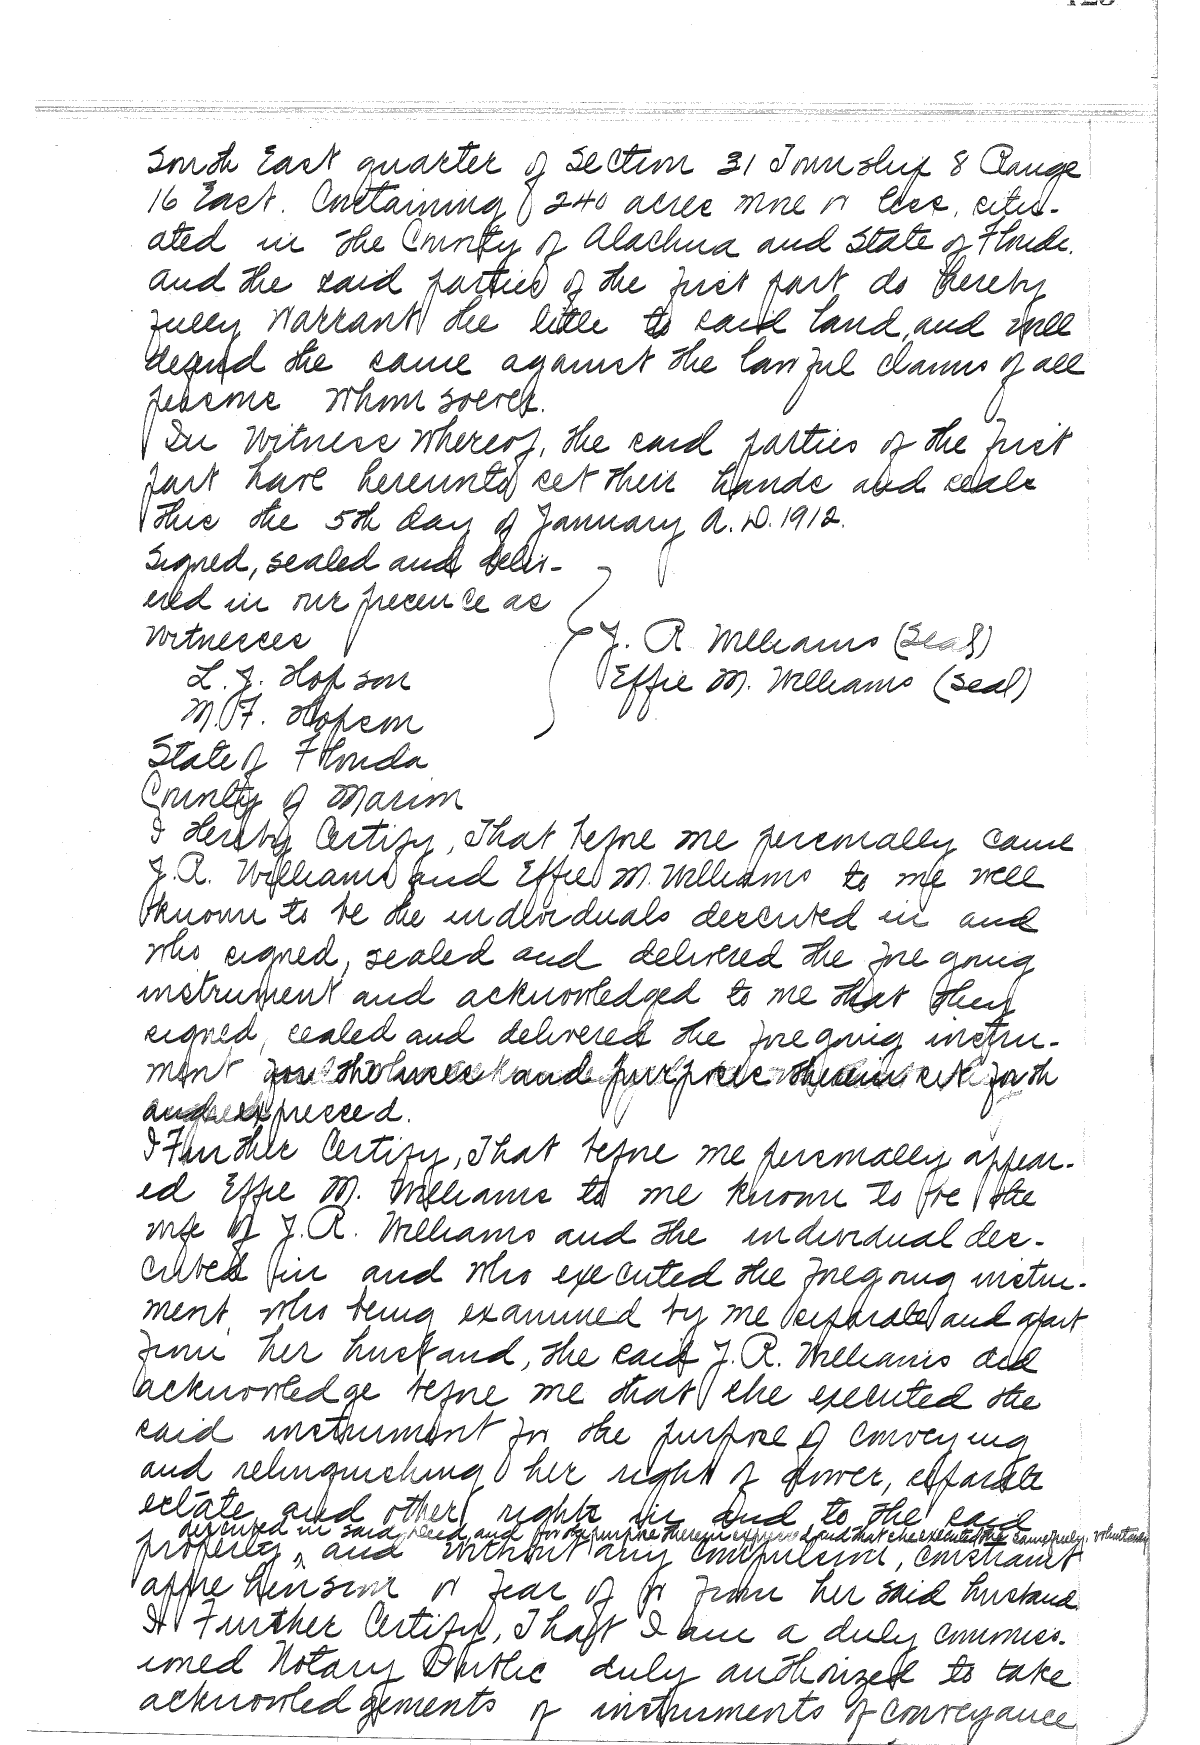 South East quarter of Section 31 Township 8 Range
16 East. Containing 240 acres more or less, situ-
ated in the County of Alachua and State of Florida.
and the said parties of the first part do hereby
fully Warrant the title to said land, and will
defend the same against the lawful claims of all
persons whomsoever.
In Witness Whereof, the said parties of the first
part have hereunto set their hands and seals
this the 5th day of January A.D. 1912.
Signed, sealed and deliv-
ered in our presence as
Witnesses
J. R Williams (Seal)
L. J. Hopson
Effie M. Williams (Seal)
M. F. Hopson
State of Florida
County of Marion
I Hereby Certify, That before me personally came
J. R. Williams and Effie M. Williams to me well
known to be the individuals described in and
who signed, sealed and delivered the foregoing
instrument and acknowledged to me that they
signed, sealed and delivered the foregoing instru-
ment for the uses and purposes therein set forth
and expressed.
I Further Certify, That before me personally appear-
ed Effie M. Williams to me known to be the
wife of J. R. Williams and the individual des-
cribed in and who executed the foregoing instru-
ment, who being examined by me separate and apart
from her husband, the said J. R. Williams did
acknowledge before me that she executed the
said instrument for the purpose of conveying
and relinquishing her right of dower, separate
estate and other rights in and to the said
described in said deed, and for the purpose therein expressed, and that she executed the same freely, voluntary
property, ^ and without any compulsion, constraint
apprehension or fear of or from her said husband
I Further Certify, That I am a duly commiss-
ioned Notary Public duly authorized to take
acknowledgements of instruments of conveyance